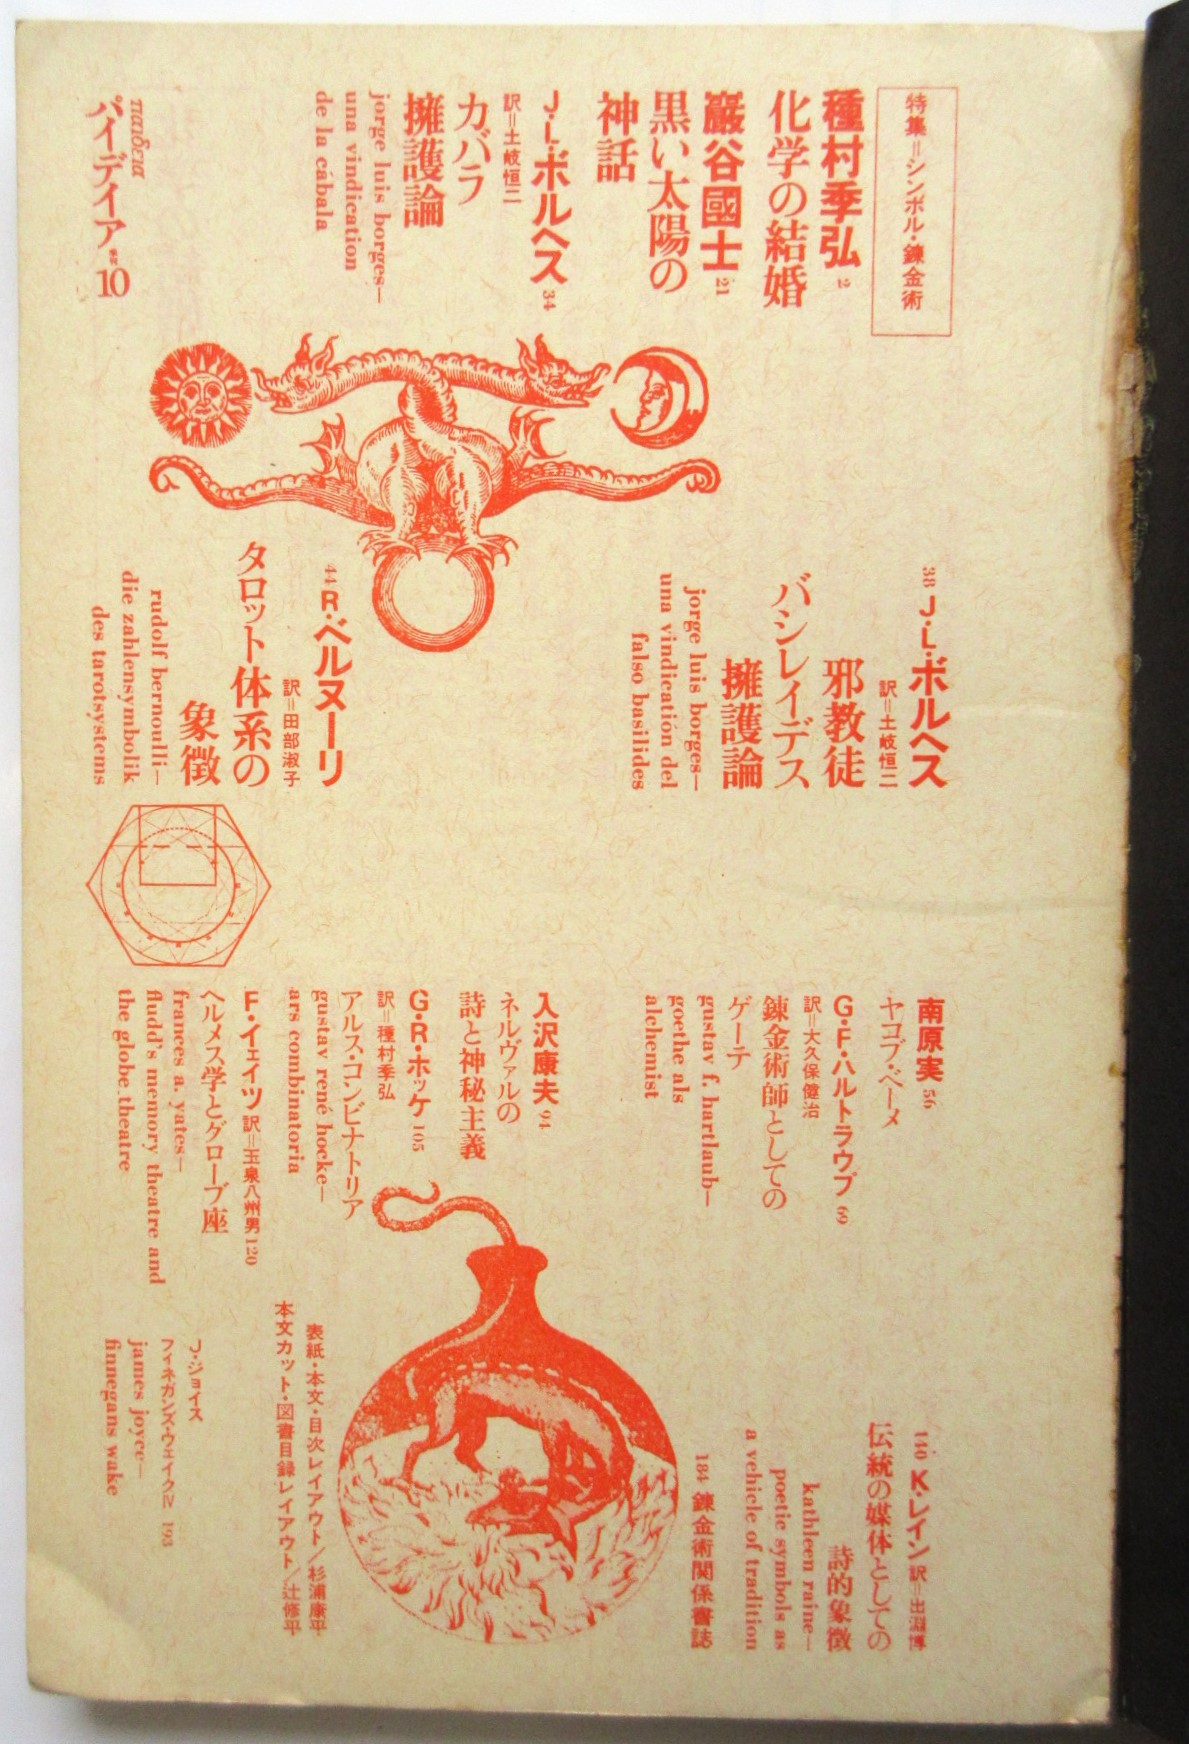 特集=シンボル・錬金術
種村季弘 12
化学の結婚
巖谷國士 21
黒い太陽の
神話
J・L・ボルヘス 34
訳=土岐恒二
カバラ
擁護論
jorge luis borges—
una vindication
de la cábala
παιδεια
パイデイア・季刊10
38 J・L・ボルヘス
訳=土岐恒二
邪教徒
バシレイデス
擁護論
jorge luis borges—
una vindicatión del
falso basilides
44 R・ベルヌーリ
訳=田部淑子
タロット体系の
象徴
rudolf bernoulli—
die zahlensymbolik
des tarotsystems
南原実 56
ヤコブ・ベーメ
G・F・ハルトラウプ 69
訳=大久保健治
錬金術師としての
ゲーテ
gustav f. hartlaub—
goethe als
alchemist
入沢康夫 94
ネルヴァルの
詩と神秘主義
G・R・ホッケ 105
訳=種村季弘
アルス・コンビナトリア
gustav rené hocke—
ars combinatoria
F・イェイツ 訳=玉泉八州男 120
ヘルメス学とグローブ座
frances a. yates—
fludd's memory theatre and
the globe theatre
140 K・レイン 訳=出淵博
伝統の媒体としての
詩的象徴
kathleen raine—
poetic symbols as
a vehicle of tradition
184 錬金術関係書誌
表紙・本文・目次レイアウト/杉浦康平
本文カット・図書目録レイアウト/辻修平
J・ジョイス
フィネガンズ・ウェイクIV 193
james joyce—
finnegans wake